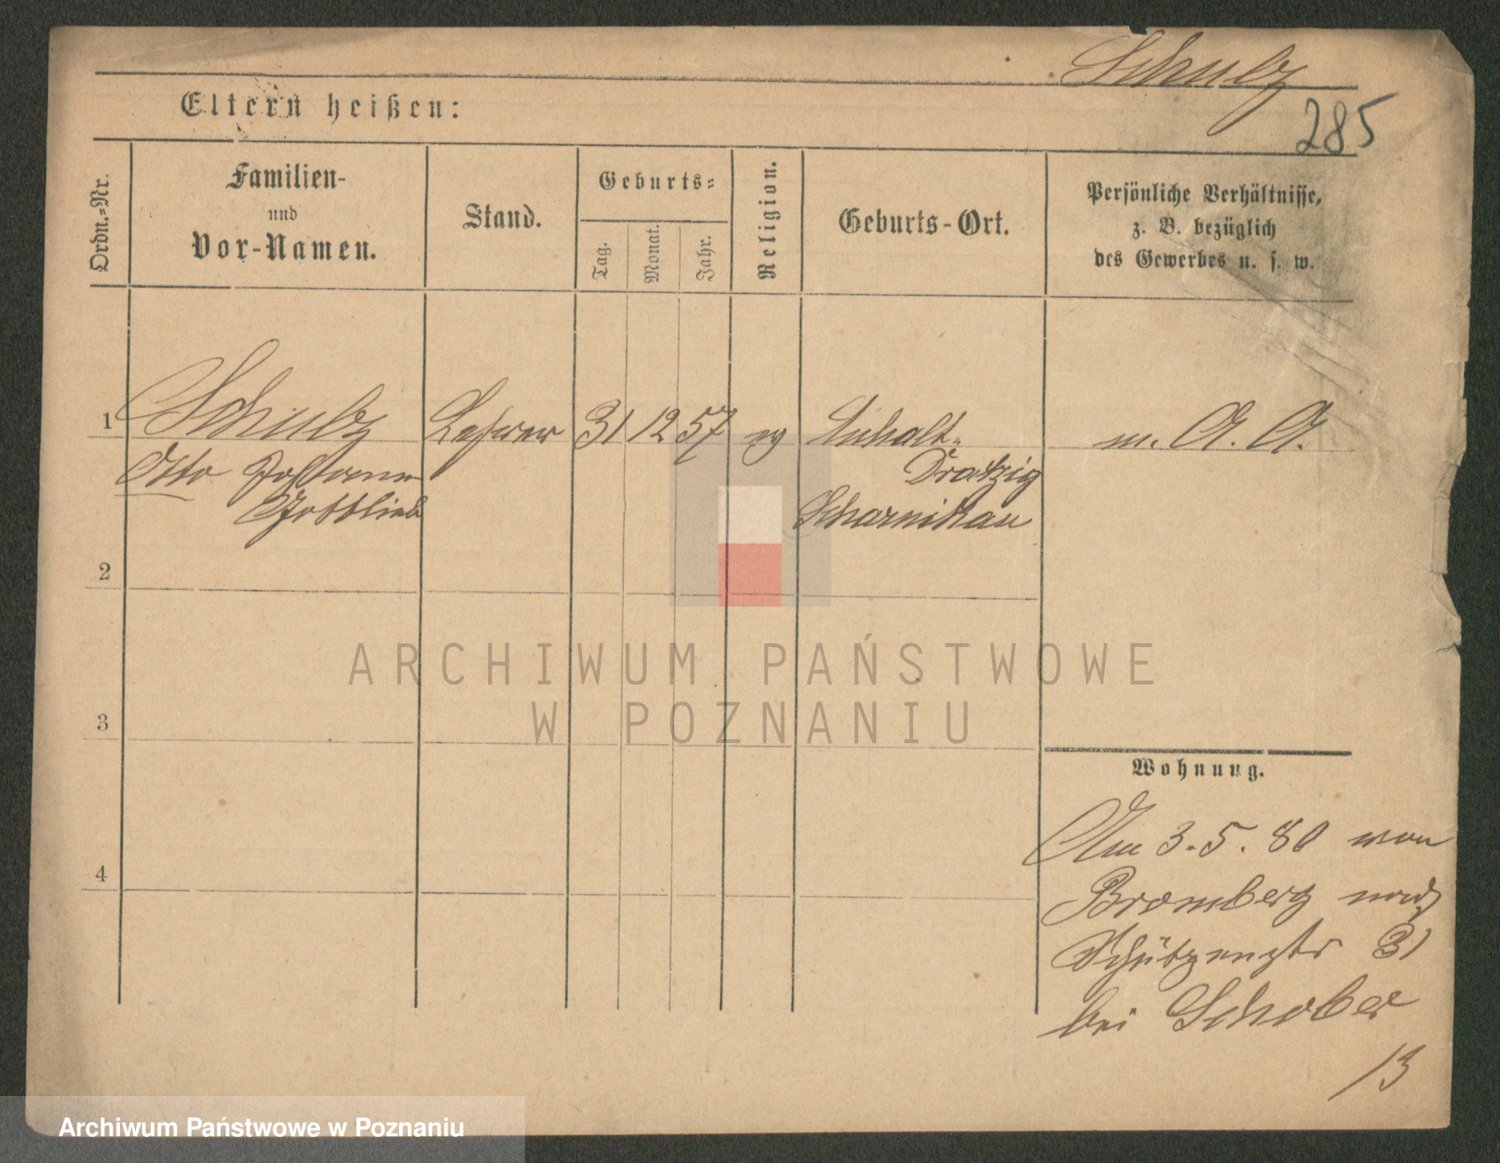 Schulz
285
Eltern heißen:
Ordn.-Nr.
Familien-
und
Vor-Namen.
Stand.
Geburts-
Tag.
Monat.
Jahr.
Religion.
Geburts-Ort.
Persönliche Verhältnisse,
z. B. bezüglich
des Gewerbes u. s. w.
1 Schulz Lehrer 31 12 57 eg Anhalt- m. A. A.
Otto Johann Dratzig
Gottlieb Scharnikau
2
3
4
Wohnung.
Am 3.5.80 von
Bromberg nach
Schützenstr 31
bei Schober
13
ARCHIWUM PAŃSTWOWE
W POZNANIU
Archiwum Państwowe w Poznaniu